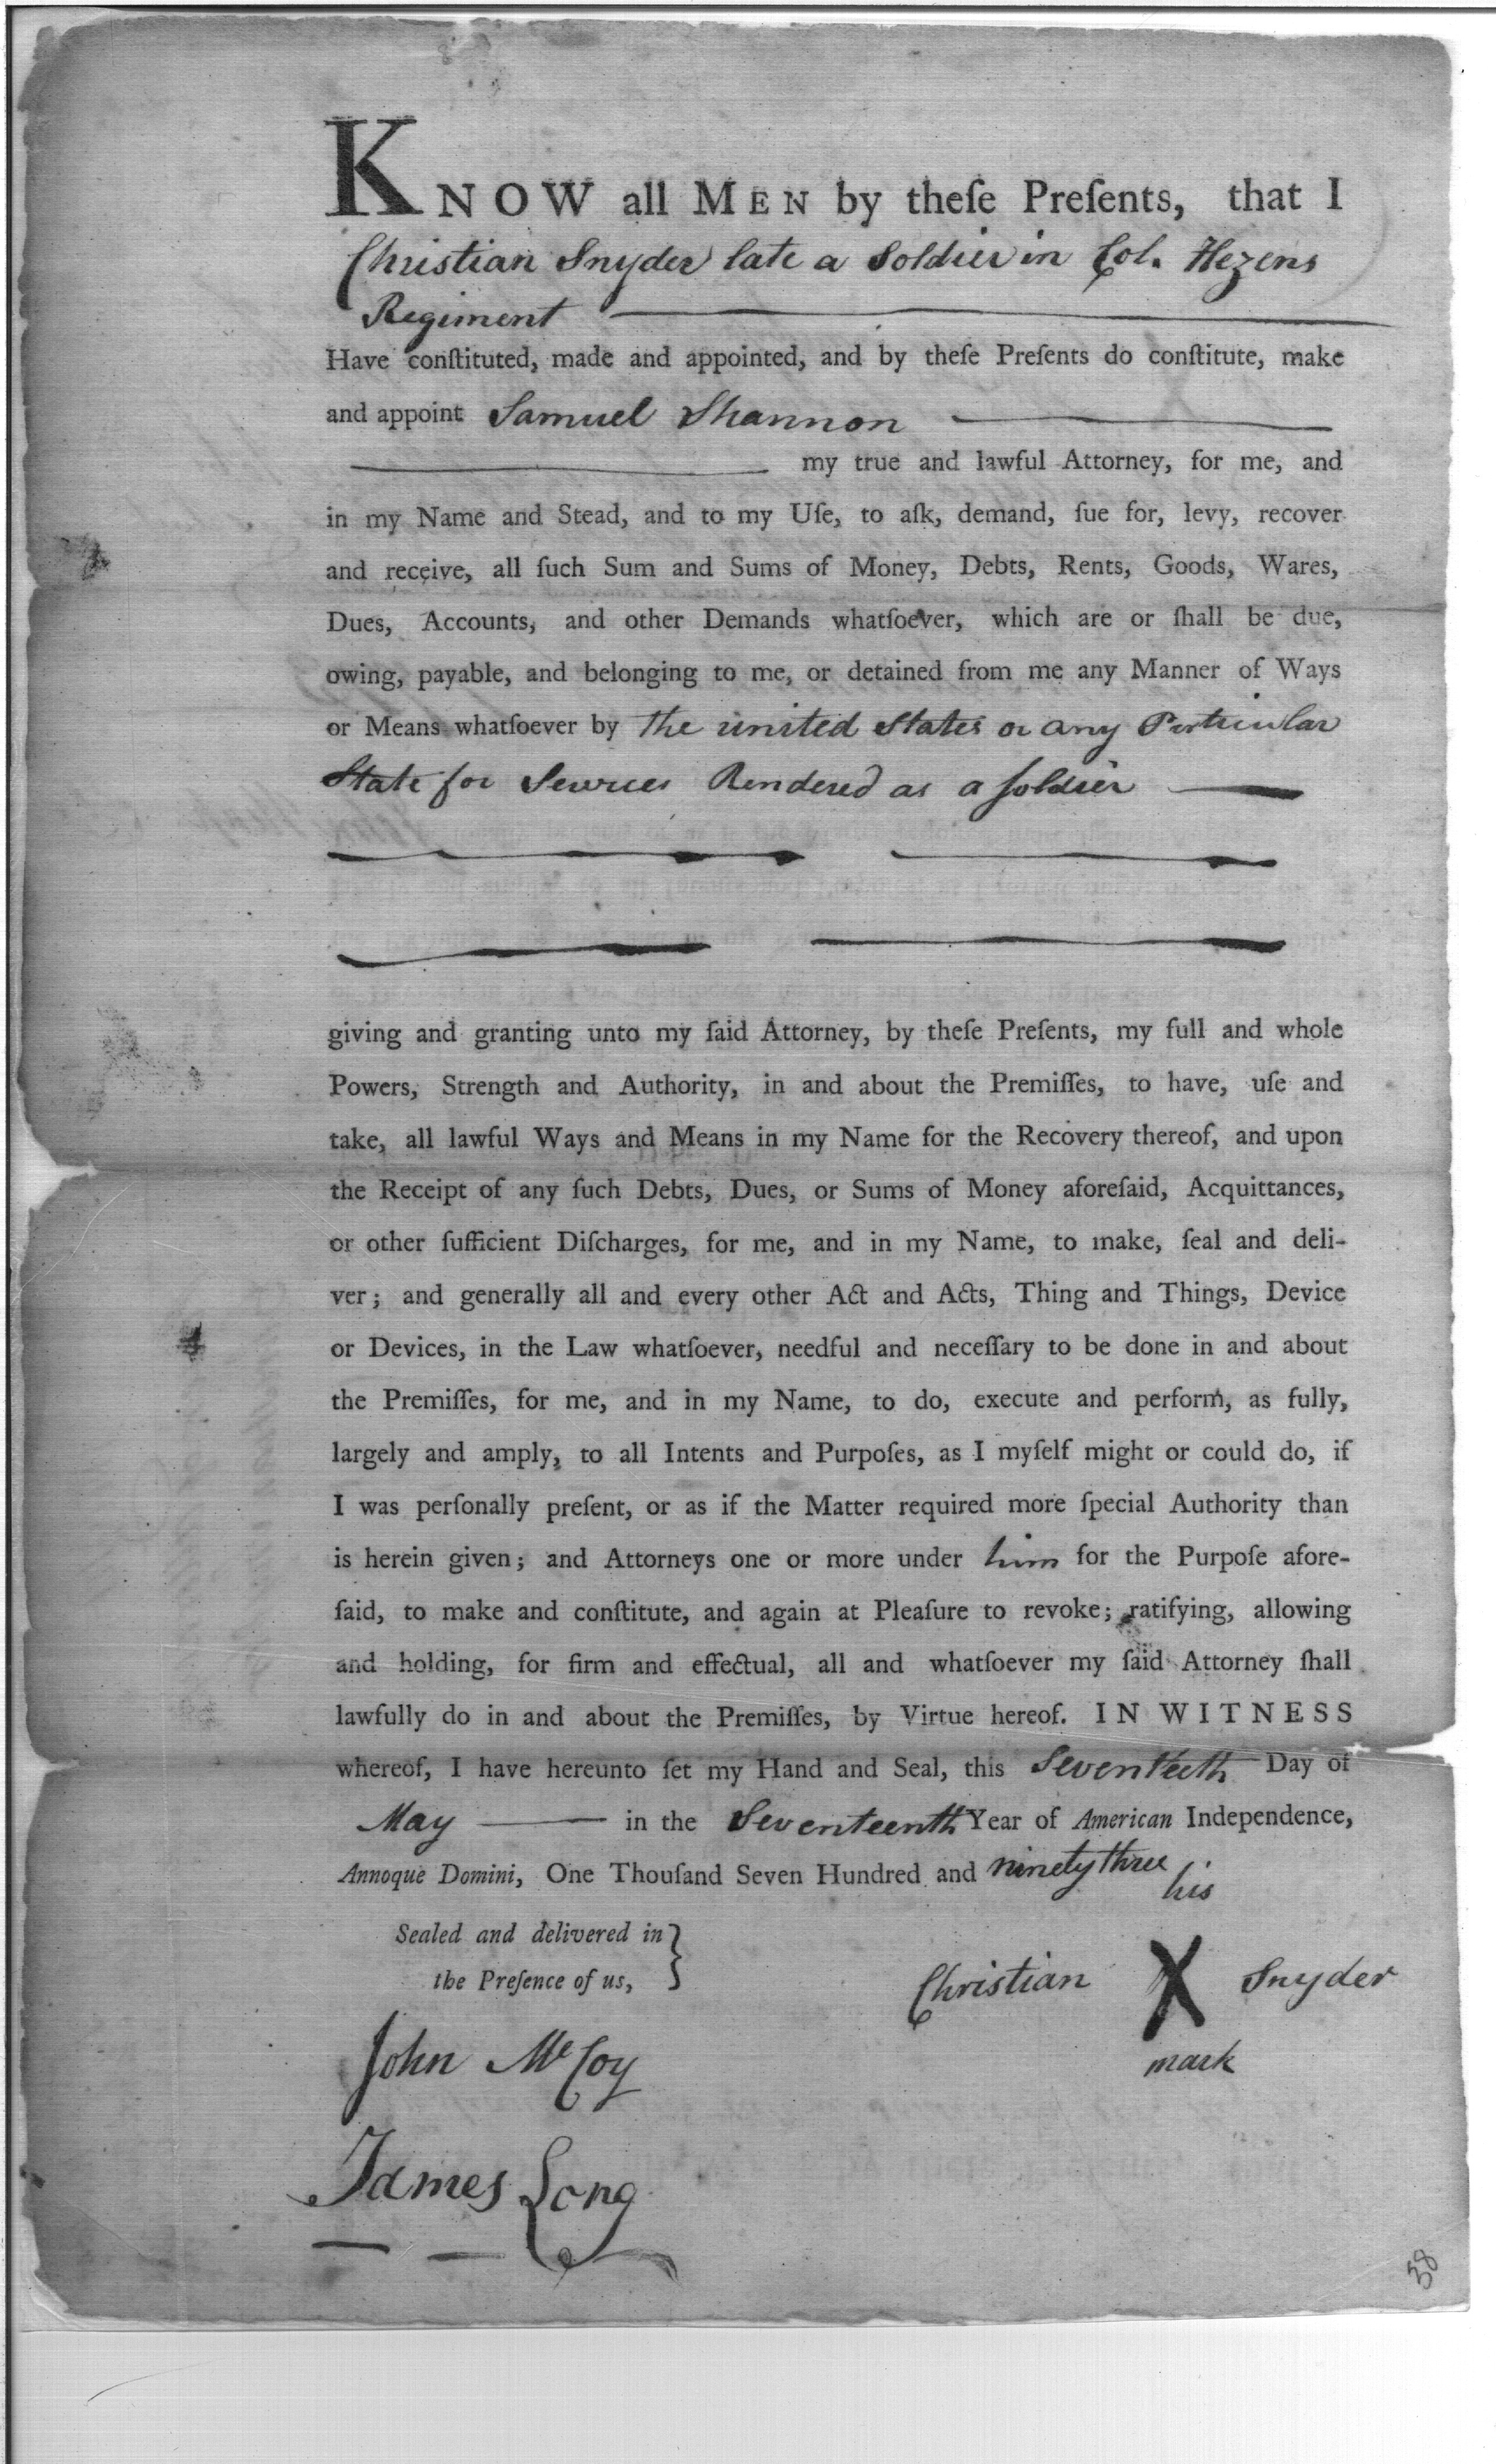 KNOW all MEN by theſe Preſents, that I
Christian Snyder late a Soldier in Col. Hezens
Regiment
Have conſtituted, made and appointed, and by theſe Preſents do conſtitute, make
and appoint Samuel Shannon
my true and lawful Attorney, for me, and
in my Name and Stead, and to my Uſe, to aſk, demand, ſue for, levy, recover
and receive, all ſuch Sum and Sums of Money, Debts, Rents, Goods, Wares,
Dues, Accounts, and other Demands whatſoever, which are or ſhall be due,
owing, payable, and belonging to me, or detained from me any Manner of Ways
or Means whatſoever by the united States or any Perticular
State for Services Rendered as a soldier
giving and granting unto my ſaid Attorney, by theſe Preſents, my full and whole
Powers, Strength and Authority, in and about the Premiſſes, to have, uſe and
take, all lawful Ways and Means in my Name for the Recovery thereof, and upon
the Receipt of any ſuch Debts, Dues, or Sums of Money aforeſaid, Acquittances,
or other ſufficient Diſcharges, for me, and in my Name, to make, ſeal and deli-
ver; and generally all and every other Act and Acts, Thing and Things, Device
or Devices, in the Law whatſoever, needful and neceſſary to be done in and about
the Premiſſes, for me, and in my Name, to do, execute and perform, as fully,
largely and amply, to all Intents and Purpoſes, as I myſelf might or could do, if
I was perſonally preſent, or as if the Matter required more ſpecial Authority than
is herein given; and Attorneys one or more under him for the Purpoſe afore-
ſaid, to make and conſtitute, and again at Pleaſure to revoke; ratifying, allowing
and holding, for firm and effectual, all and whatſoever my ſaid Attorney ſhall
lawfully do in and about the Premiſſes, by Virtue hereof. IN WITNESS
whereof, I have hereunto ſet my Hand and Seal, this Seventeth Day of
May in the Seventeenth Year of American Independence,
Annoque Domini, One Thouſand Seven Hundred and ninety three
his
Sealed and delivered in
the Preſence of us,
Christian X Snyder
mark
John McCoy
James Long
38